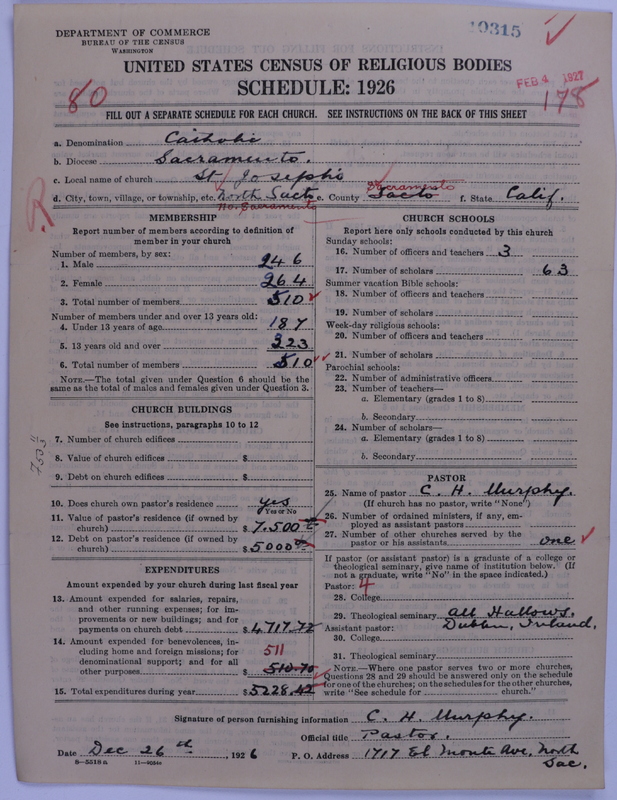 DEPARTMENT OF COMMERCE
BUREAU OF THE CENSUS
WASHINGTON
19315
UNITED STATES CENSUS OF RELIGIOUS BODIES
SCHEDULE: 1926
FEB 4 1927
80
178
FILL OUT A SEPARATE SCHEDULE FOR EACH CHURCH. SEE INSTRUCTIONS ON THE BACK OF THIS SHEET
a. Denomination Catholic
b. Diocese Sacramento.
c. Local name of church St Josephs
d. City, town, village, or township, etc. North Sacto e. County Sacto f. State Calif.
No. Sacramento
Sacramento
R
MEMBERSHIP
Report number of members according to definition of
member in your church
Number of members, by sex:
1. Male 246
2. Female 264
3. Total number of members 510
Number of members under and over 13 years old:
4. Under 13 years of age 187
5. 13 years old and over 323
6. Total number of members 510
NOTE.—The total given under Question 6 should be the
same as the total of males and females given under Question 3.
CHURCH BUILDINGS
See instructions, paragraphs 10 to 12
7. Number of church edifices
8. Value of church edifices $
9. Debt on church edifices $
10. Does church own pastor's residence yes
Yes or No
11. Value of pastor's residence (if owned by
church) $ 7.500 00
12. Debt on pastor's residence (if owned by
church) $ 5000 00
EXPENDITURES
Amount expended by your church during last fiscal year
13. Amount expended for salaries, repairs,
and other running expenses; for im-
provements or new buildings; and for
payments on church debt $ 4717.72
14. Amount expended for benevolences, in-
cluding home and foreign missions; for
denominational support; and for all
other purposes $ 510.70
511
15. Total expenditures during year $ 5228.42
CHURCH SCHOOLS
Report here only schools conducted by this church
Sunday schools:
16. Number of officers and teachers 3
17. Number of scholars 63
Summer vacation Bible schools:
18. Number of officers and teachers
19. Number of scholars
Week-day religious schools:
20. Number of officers and teachers
21. Number of scholars
Parochial schools:
22. Number of administrative officers
23. Number of teachers—
a. Elementary (grades 1 to 8)
b. Secondary
24. Number of scholars—
a. Elementary (grades 1 to 8)
b. Secondary
PASTOR
25. Name of pastor C. H. Murphy.
(If church has no pastor, write "None")
26. Number of ordained ministers, if any, em-
ployed as assistant pastors
27. Number of other churches served by the
pastor or his assistants one
If pastor (or assistant pastor) is a graduate of a college or
theological seminary, give name of institution below. (If
not a graduate, write "No" in the space indicated.)
Pastor: 4
28. College
29. Theological seminary All Hallows.
Assistant pastor: Dublin, Ireland.
30. College
31. Theological seminary
NOTE.—Where one pastor serves two or more churches,
Questions 28 and 29 should be answered only on the schedule
for one of the churches; on the schedules for the other churches,
write "See schedule for church."
Signature of person furnishing information C. H. Murphy.
Official title Pastor.
Date Dec 26th, 1926 P. O. Address 1717 El Monte Ave, North
Sac.
8—5518a 11—9034c